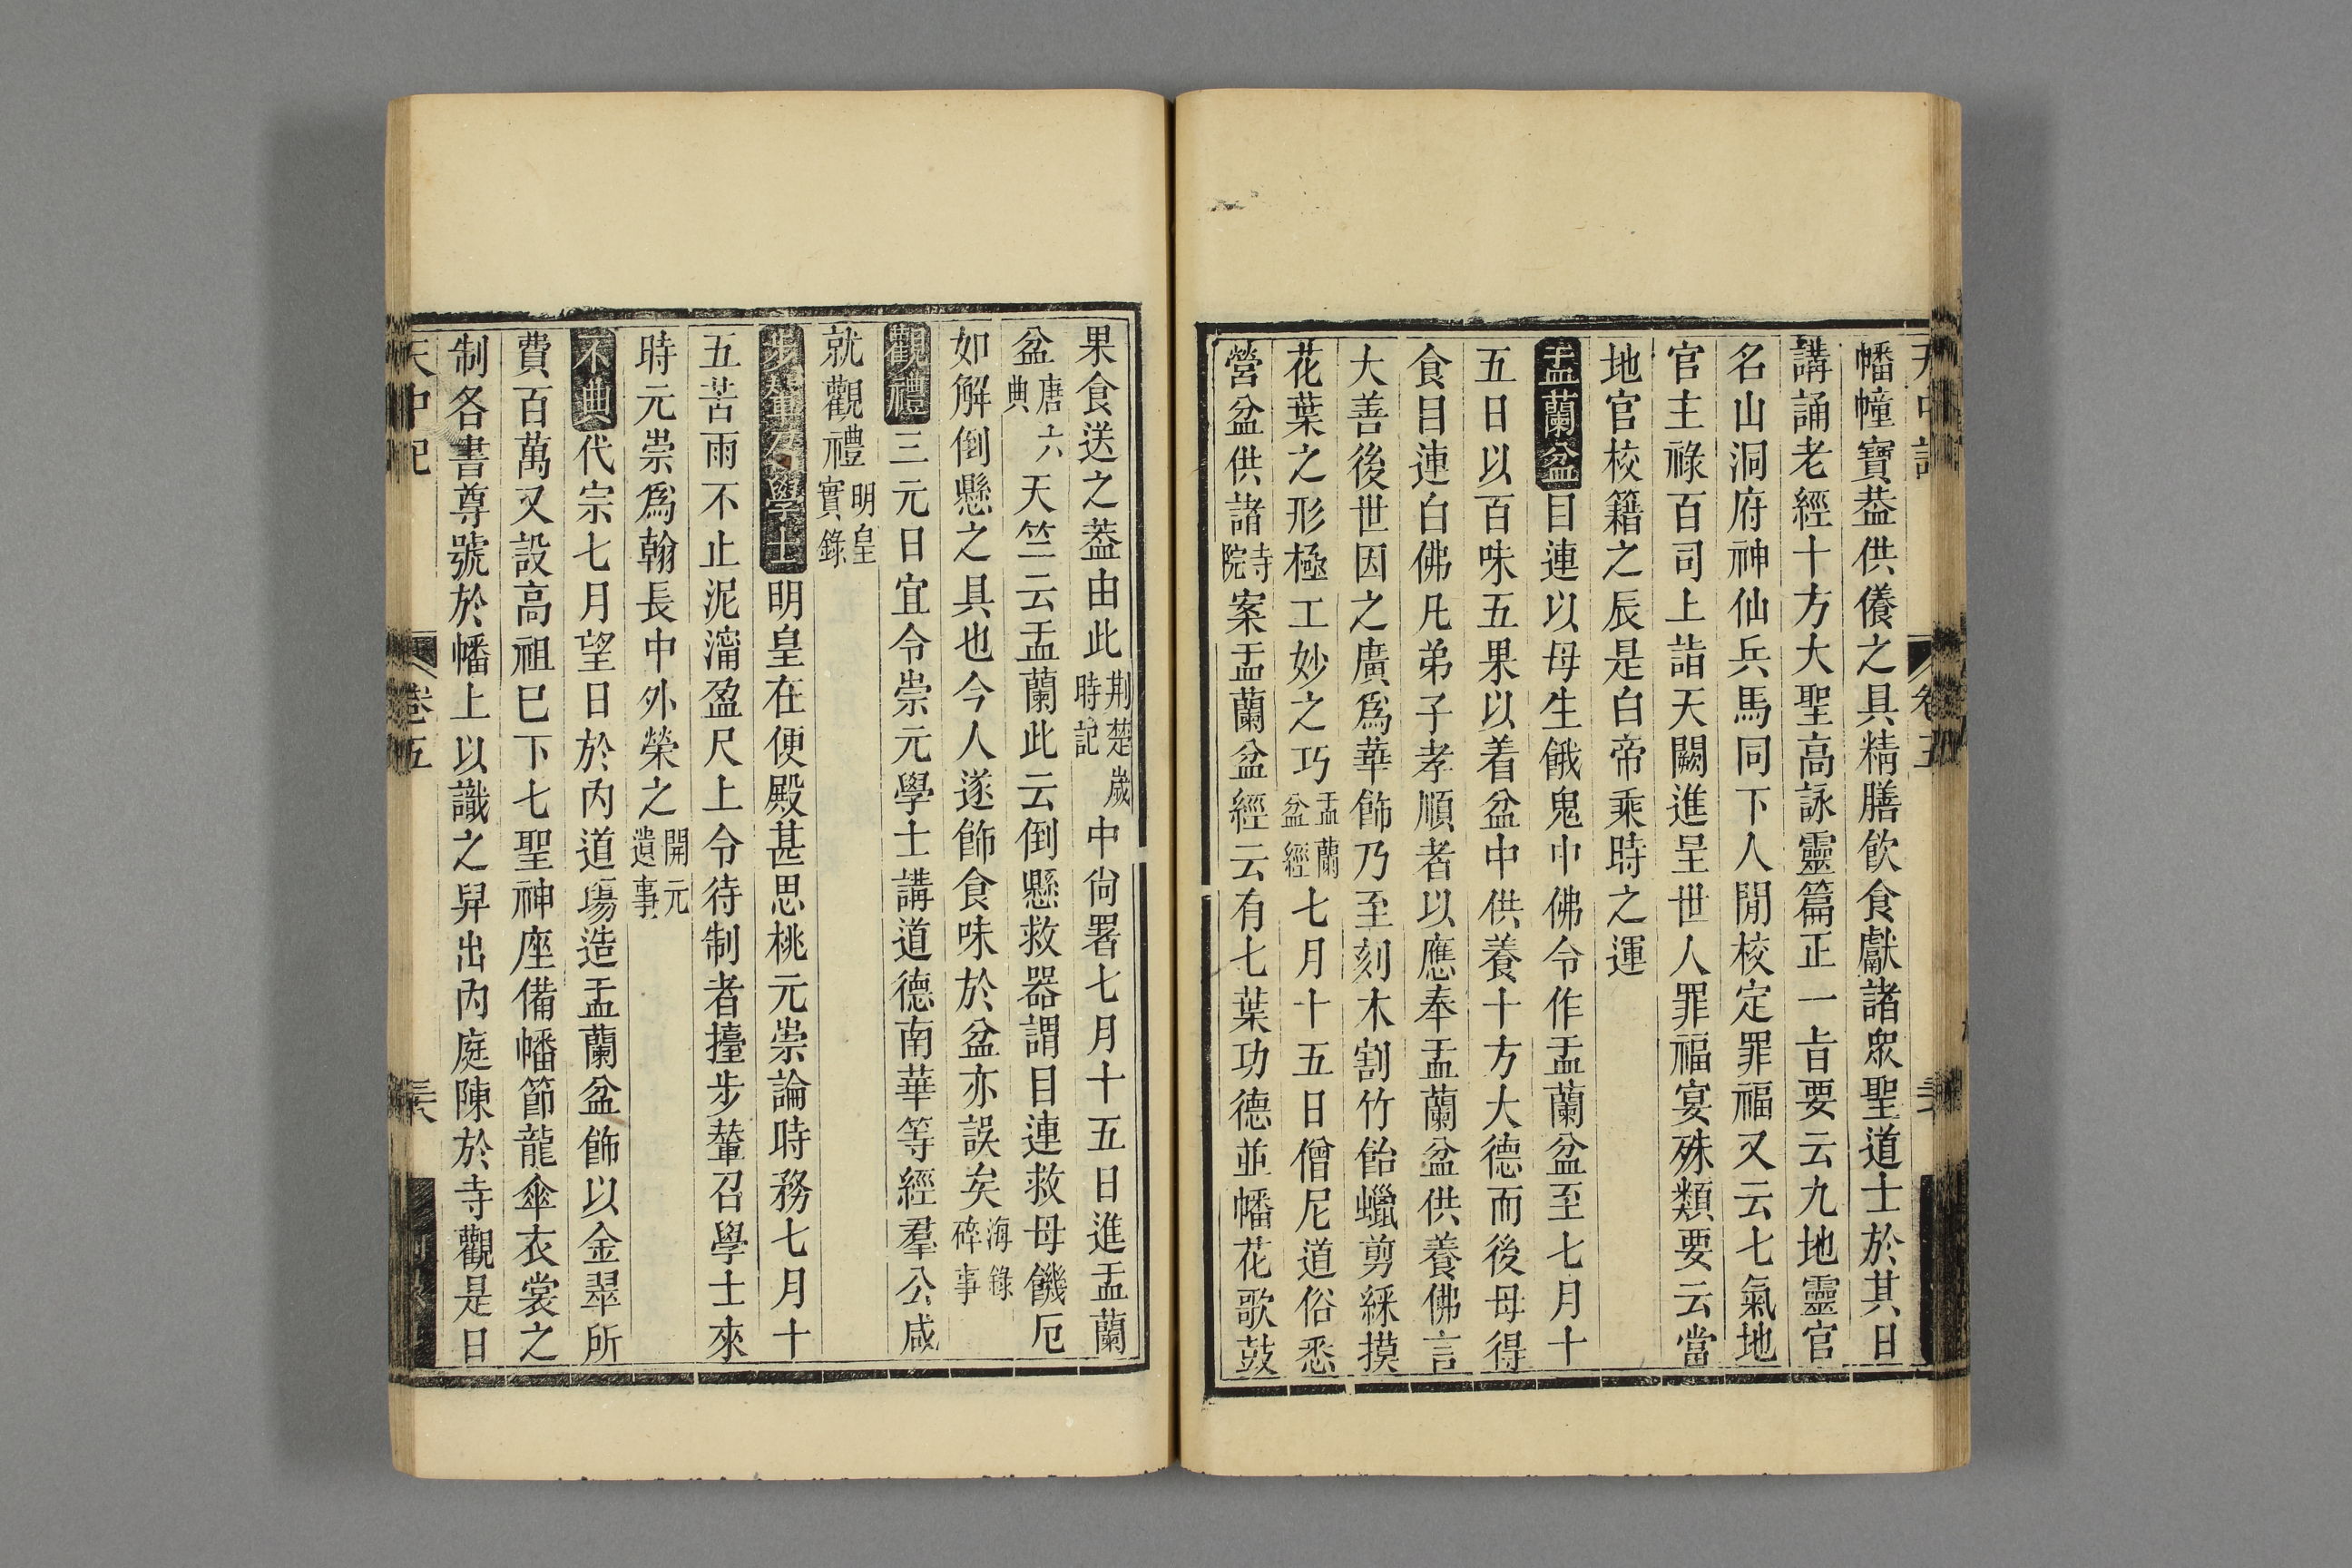 幡幢寶葢供儀之具精膳飲食獻諸衆聖道士於其日
講誦老經十方大聖高詠靈篇正一㫖要云九地靈官
名山洞府神仙兵馬同下人閒校定罪福又云七氣地
官主祿百司上詣天闕進呈世人罪福宴殊類要云當
地官校籍之辰是白帝乘時之運
盂蘭盆目連以母生餓鬼中佛令作盂蘭盆至七月十
五日以百味五果以着盆中供養十方大德而後母得
食目連白佛凡弟子孝順者以應奉盂蘭盆供養佛言
大善後世因之廣爲華飾乃至刻木割竹飴蠟剪綵摸
花葉之形極工妙之巧盂蘭盆經七月十五日僧尼道俗悉
營盆供諸寺院案盂蘭盆經云有七葉功德並幡花歌鼓
果食送之葢由此荆楚歲時記中尙署七月十五日進盂蘭
盆唐六典天竺云盂蘭此云倒懸救器謂目連救母饑厄
如解倒懸之具也今人遂飾食味於盆亦誤矣海錄碎事
觀禮三元日宜令崇元學士講道德南華等經羣公咸
就觀禮明皇實錄
步輦召學士明皇在便殿甚思桃元崇論時務七月十
五苦雨不止泥濘盈尺上令待制者擡步輦召學士來
時元崇爲翰長中外榮之開元遺事
不典代宗七月望日於内道塲造盂蘭盆飾以金翠所
費百萬又設高祖巳下七聖神座備幡節龍傘衣裳之
制各書尊號於幡上以識之舁出内庭陳於寺觀是日
天中記
卷五